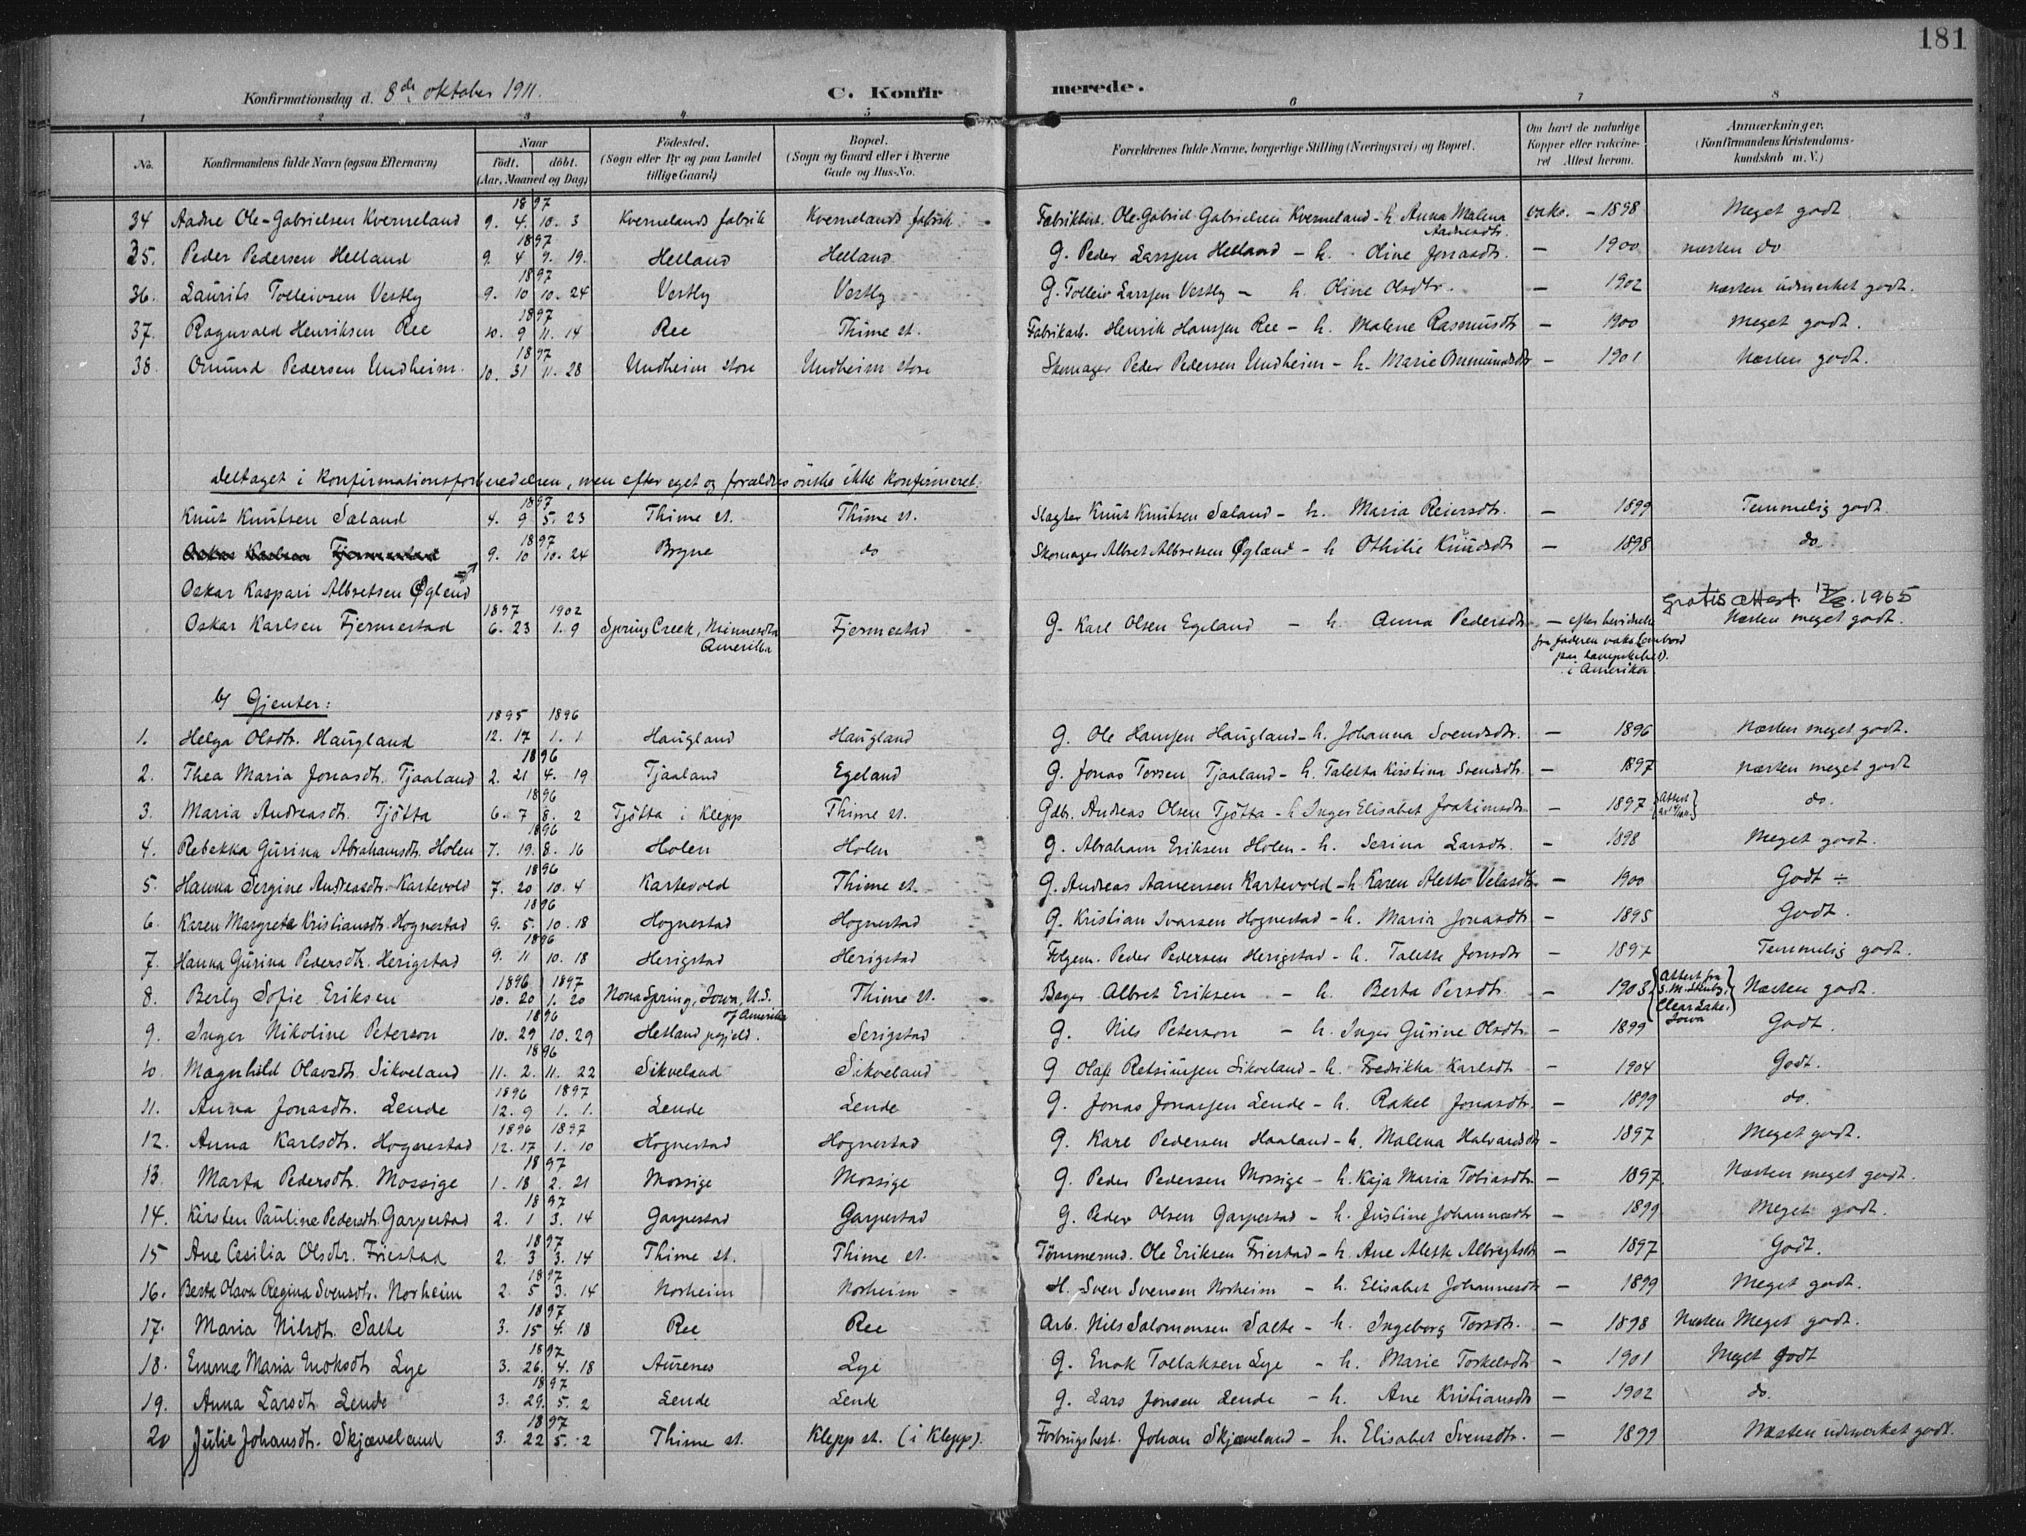 181
Konfirmationsdag d. 8de oktober 1911.
C. Konfirmerede.
1 2 3 4 5 6 7 8
No. Konfirmandens fulde Navn (ogsaa Efternavn) Naar født. døbt. (Aar, Maaned og Dag) Fødested. (Sogn eller By og paa Landet tillige Gaard) Bopæl. (Sogn og Gaard eller i Byerne Gade og Hus-No. Forældrenes fulde Navne, borgerlige Stilling (Næringsvei) og Bopæl. Om havt de naturlige Kopper eller vakcineret Attest herom. Anmærkninger. (Konfirmandens Kristendomskundskab m. V.)
34 Aadne Ole-Gabrielsen Kverneland 1897 9. 4. 10. 3 Kvernelands fabrik Kvernelands fabrik Fabrikbest. Ole Gabriel Gabrielsen Kverneland - h. Anna Malena Aadnesdtr. vaks. - 1898 Meget godt
35. Peder Pedersen Helland 1897 9. 4 9. 19. Helland Helland G. Peder Larssen Helland - h. Oline Jonasdtr. - 1900 næsten do
36. Laurits Tolleivsen Vestly 1897 9. 10 10. 24 Vestly Vestly G. Tolleiv Larssen Vestly - h. Oline Olsdtr. - 1902 næsten udmerket godt.
37. Ragnvald Henriksen Ree 1897 10. 9 11. 14 Ree Thime st. Fabrikarb. Henrik Hanssen Ree - h. Malene Rasmusdtr - 1900 Meget godt.
38. Omund Pedersen Undheim. 1897 10. 31 11. 28 Undheim store Undheim store Skomager Peder Pedersen Undheim - h. Marie Omundsdtr - 1901 Næsten godt.
deltaget i konfirmationsforberedelsen, men efter eget og forældres ønske ikke konfirmeret.
Knut Knutsen Sæland 1897 4. 9 5. 23 Thime st. Thime st. Slagter Knut Knutsen Sæland - h. Maria Reiersdtr. - 1899 Temmelig godt.
Oskar Karlsen Fjermestad 1897 9. 10 10. 24 Bryne do Skomager Albret Albretsen Øglænd - h Othilie Knudsdtr - 1898 do
Oskar Kaspari Albretsen Øglend
gratis attest. 17/8. 1965
Oskar Karlsen Fjermestad 1897 6. 23 1902 1. 9 Spring Creek, Minnesota Amerika Fjermestad G. Karl Olsen Egeland - h Anna Pedersdtr - efter
fra faderen vaks. (ombord
paa
i Amerika
b) Gjenter:
1. Helga Olsdtr. Haugland 1895 12. 17 1896 1. 1 Haugland Haugland G. Ole Hanssen Haugland - h. Johanna Svendsdtr. - 1896 Næsten meget godt.
2. Thea Maria Jonasdtr. Tjaaland 1896 2. 21 4. 19 Tjaaland Egeland G. Jonas Torsen Tjaaland - h. Taletta Kirstina Svendsdtr. - 1897 næsten meget godt
3. Maria Andreasdtr. Tjøtta 1896 6. 7 8. 2 Tjøtta i Klepp Thime st. Gdbr. Andreas Olsen Tjøtta - h Inger Elisabet Joakimsdtr - 1897 do.
4. Rebekka Gurina Abrahamsdtr. Holen 1896 7. 19. 8. 16 Holen Holen G. Abraham Eriksen Holen - h. Serina Larsdtr. - 1898 Meget godt.
5. Hanna Sergine Andreasdtr. Kartevold 1896 7. 20 10. 4 Kartevold Thime st. G. Andreas Aanensen Kartevold - h Karen Alette Velasdtr - 1900 Godt ÷
6. Karen Margreta Kristiansdtr. Hognestad 1896 9. 5. 10. 18 Hognestad Hognestad G. Kristian Ivarsen Hognestad - h. Maria Jonasdtr - 1895 Godt.
7. Hanna Gurina Pedersdtr. Herigstad 1896 9. 11 10. 18 Herigstad Herigstad Folgem. Peder Pedersen Herigstad - h. Talette Jonsdtr - 1897 Temmelig godt.
8. Berly Sofie Eriksen 1896 10. 20 1897 1. 20 Nora Spring, Iowa, U.S. of Amerika Thime st. Bager Albret Eriksen - h. Berta Persdtr. - 1903. {Attest fra S. M. Clear Lake. Iowa} Næsten godt.
9. Inger Nikoline Peterson 1896 10. 29 10. 29 Hetland prgjeld. Serigstad G. Nils Peterson - h. Inger Gurine Olsdtr - 1899 Godt.
10. Magnhild Olavsdtr. Sikveland 1896 11. 2. 11. 22 Sikveland Sikveland G Olaf Sikveland - h. Fredrikka Karlsdtr - 1904 Godt.
11. Anna Jonasdtr. Lende 1896 12. 9 1897 1. 1. Lende Lende G. Jonas Jonassen Lende - h. Rakel Jonasdtr. - 1899 do.
12. Anna Karlsdtr. Hognestad 1896 12. 17 1897 1. 10 Hognestad Hognestad G. Karl Pedersen Haaland - h. Malena Halvardsdtr - 1897 Meget godt.
13. Marta Pedersdtr. Mossige 1897 1. 18 2. 21 Mossige Mossige G. Peder Pedersen Mossige - h. Kaja Maria Tobiasdtr - 1897 Næsten meget godt.
14. Kirsten Pauline Pedersdtr. Garpestad 1897 2. 1 3. 14 Garpestad Garpestad G. Peder Olsen Garpestad - h. Justine Johannesdtr - 1899 Meget godt.
15 Ane Cesilia Olsdtr. Friestad 1897 2. 3 3. 14 Thime st. Thime st. Tømmermd. Ole Eriksen Friestad - h. Ane Alette Albregtsdtr - 1897 Godt.
16. Berta Olava Regina Svensdtr. Norheim 1897 2. 5 3. 14 Norheim Norheim H. Sven Svensen Norheim - h. Elisabet Johannesdtr - 1899 Meget godt.
17. Maria Nilsdtr. Salte 1897 3. 15 4. 18 Ree Ree Arb. Nils Salomonsen Salte - h. Ingeborg Torsdtr. - 1898 Næsten Meget godt.
18. Emma Maria Enoksdtr Lye 1897 3. 26. 4. 18 Aurenes Lye G. Enok Tollaksen Lye - h. Marie Torkelsdtr - 1901 Meget godt
19. Anna Larsdtr Lende 1897 3. 29. 5. 2 Lende Lende G. Lars Jonsen Lende - h. Ane Kristiansdtr - 1902 do.
20 Julie Johansdtr. Skjæveland 1897 3. 22 5. 2 Thime st. Klepp st. (i Klepp). Forbrugsbest. Johan Skjæveland - h. Elisabet Svensdtr. - 1899 Næsten udmerket godt.